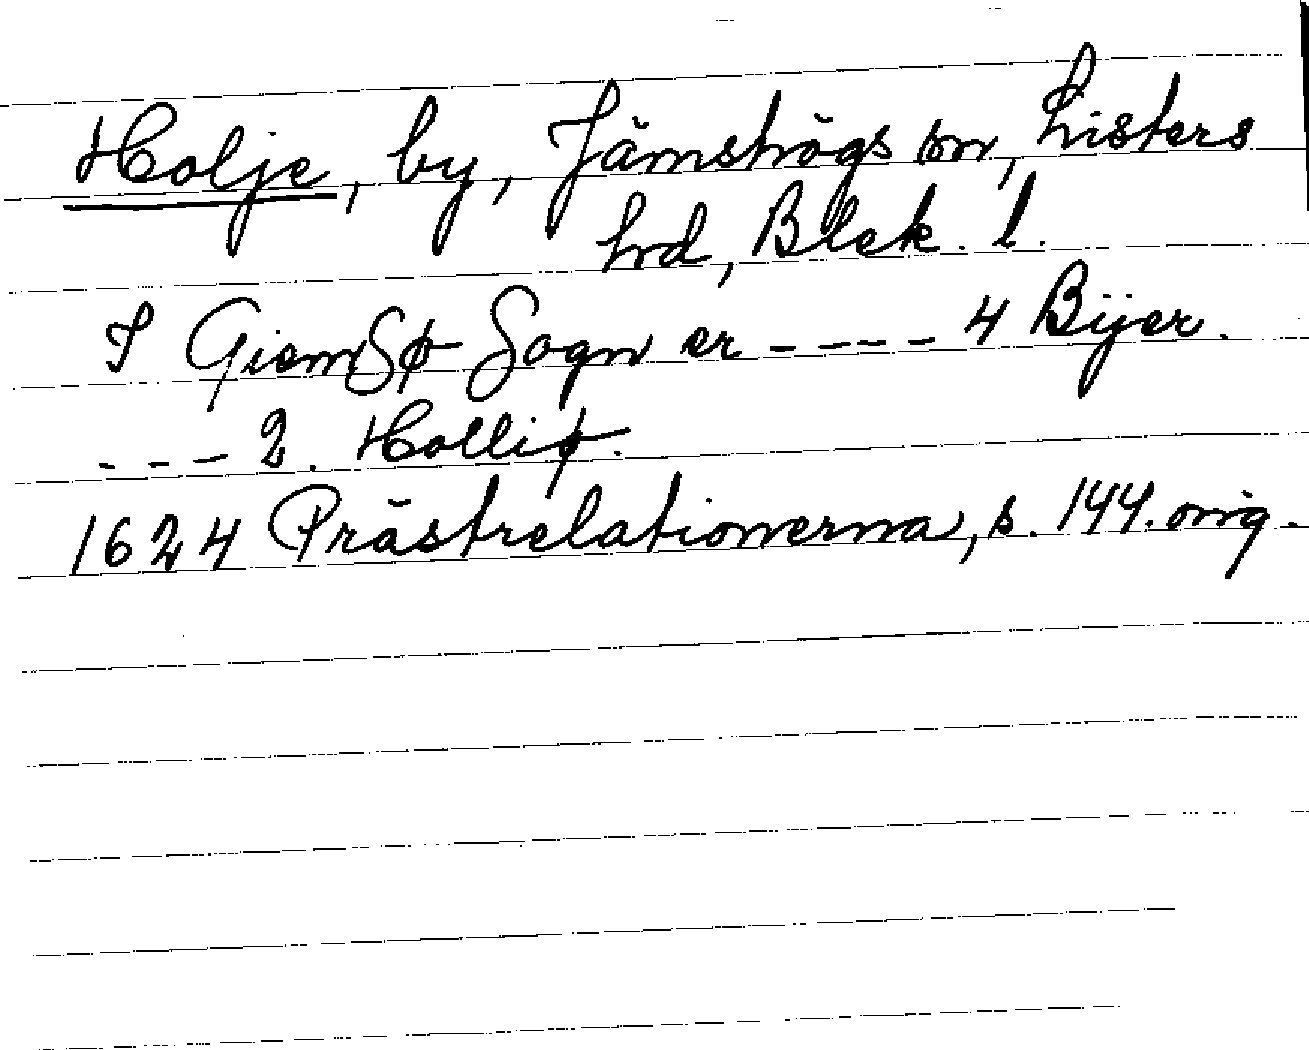 Holje, by, Jämshögs sn, Listers
hrd, Blek. l.
I Giemsø Sogn er - - - - 4 Bÿer.
- - - 2. Holliø.
1624 Prästrelationerna, s. 144. orig.